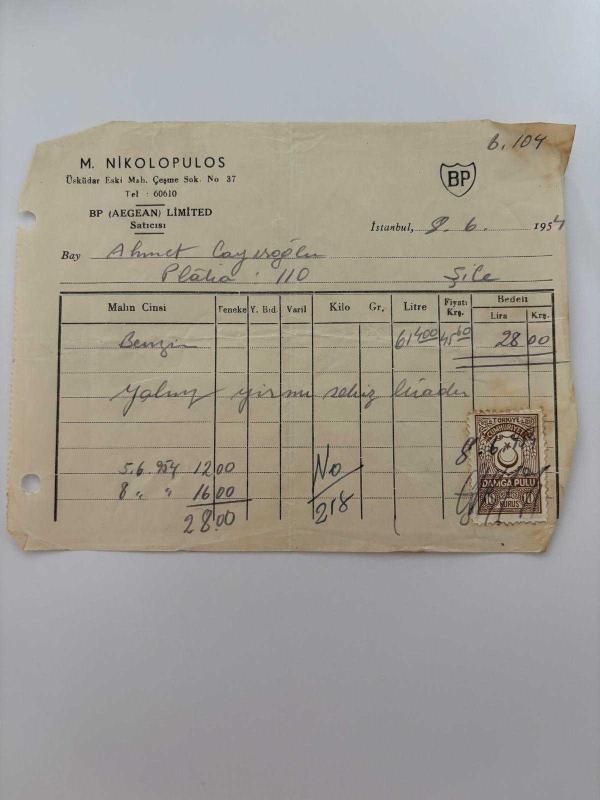 B. 104
M. NİKOLOPULOS
Üsküdar Eski Mah. Çeşme Sok. No 37
Tel : 60610
BP (AEGEAN) LİMİTED
Satıcısı
BP
İstanbul, 8. 6. 1954
Bay Ahmet
Plâka . 110 Şile
Malın Cinsi Teneke Y. Bid. Varil Kilo Gr. Litre Fiyatı Krş. Bedeli Lira Krş.
Benzin 61 400 45 60 28 00
Yalnız yirmi sekiz liradır
5.6.954 12 00
8 " " 16 00
28.00
No 218
TÜRKİYE
CUMHURİYETİ
DAMGA PULU
10 KURUŞ 10